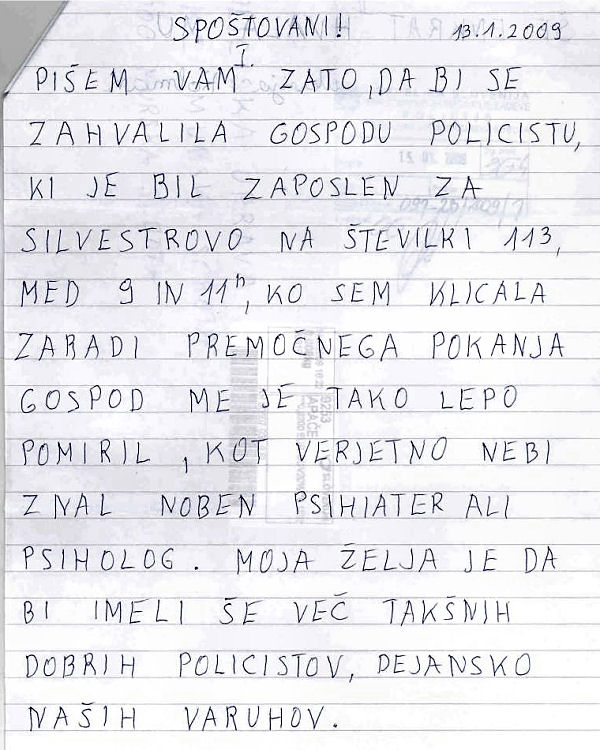 SPOŠTOVANI! 13.1.2009
I.
PIŠEM VAM ZATO, DA BI SE
ZAHVALILA GOSPODU POLICISTU,
KI JE BIL ZAPOSLEN ZA
SILVESTROVO NA ŠTEVILKI 113,
MED 9 IN 11h, KO SEM KLICALA
ZARADI PREMOČNEGA POKANJA
GOSPOD ME JE TAKO LEPO
POMIRIL, KOT VERJETNO NEBI
ZNAL NOBEN PSIHIATER ALI
PSIHOLOG. MOJA ŽELJA JE DA
BI IMELI ŠE VEČ TAKŠNIH
DOBRIH POLICISTOV, DEJANSKO
NAŠIH VARUHOV.